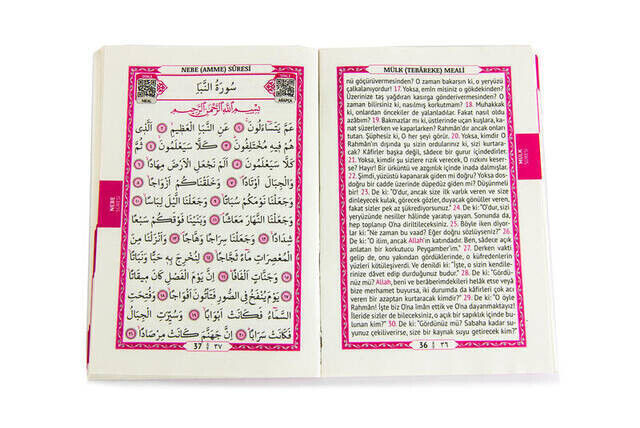 NEBE (AMME) SÛRESİ
DİNLE
DİNLE
MEAL
ARAPÇA
سورة النبإ
بسم الله الرحمن الرحيم
عَمَّ يَتَسَاءَلُونَ ١ عَنِ النَّبَاِ الْعَظِيمِ ٢ اَلَّذِى
هُمْ فِيهِ مُخْتَلِفُونَ ٣ كَلَّا سَيَعْلَمُونَ ٤ ثُمَّ
كَلَّا سَيَعْلَمُونَ ٥ اَلَمْ نَجْعَلِ الْاَرْضَ مِهَادًا ٦
وَالْجِبَالَ اَوْتَادًا ٧ وَخَلَقْنَاكُمْ اَزْوَاجًا ٨
وَجَعَلْنَا نَوْمَكُمْ سُبَاتًا ٩ وَجَعَلْنَا الَّيْلَ لِبَاسًا ١٠
وَجَعَلْنَا النَّهَارَ مَعَاشًا ١١ وَبَنَيْنَا فَوْقَكُمْ سَبْعًا
شِدَادًا ١٢ وَجَعَلْنَا سِرَاجًا وَهَّاجًا ١٣ وَاَنْزَلْنَا مِنَ
الْمُعْصِرَاتِ مَاءً ثَجَّاجًا ١٤ لِنُخْرِجَ بِهِ حَبًّا وَنَبَاتًا ١٥
وَجَنَّاتٍ اَلْفَافًا ١٦ اِنَّ يَوْمَ الْفَصْلِ كَانَ مِيقَاتًا ١٧
يَوْمَ يُنْفَخُ فِى الصُّورِ فَتَأْتُونَ اَفْوَاجًا ١٨ وَفُتِحَتِ
السَّمَاءُ فَكَانَتْ اَبْوَابًا ١٩ وَسُيِّرَتِ الْجِبَالُ
فَكَانَتْ سَرَابًا ٢٠ اِنَّ جَهَنَّمَ كَانَتْ مِرْصَادًا ٢١
37 ٣٧
NEBE
SÛRESİ
MÜLK (TEBÂREKE) MEALİ
nü göçürüvermesinden? O zaman bakarsın ki, o yeryüzü
çalkalanıyordur! 17. Yoksa, emin misiniz o göktekinden?
Üzerinize taş yağdıran kasırga göndermesinden? O
zaman bilirsiniz ki, nasılmış korkutmam? 18. Muhakkak
ki, onlardan öncekiler de yalanladılar. Fakat nasıl oldu
azâbım? 19. Bakmazlar mı ki, üstlerinde uçan kuşlara, kanat
süzerlerken ve kaparlarken? Rahmân'dır ancak onları
tutan. Şüphesiz ki, O her şeyi görür. 20. Yoksa, kimdir O
Rahmân'ın dışında şu sizin ordularınız ki, sizi kurtaracak?
Kâfirler başka değil, sadece bir gurur içindedirler.
21. Yoksa, kimdir şu sizlere rızık verecek, O rızkını keserse?
Hayır! Bir ürküntü ve azgınlık içinde inada dalmışlar.
22. Şimdi, yüzüstü kapanarak giden mi doğru? Yoksa dosdoğru
bir cadde üzerinde düpedüz giden mi? Düşünmeli
bir! 23. De ki: "O'dur, ancak size ilk varlık veren ve size
dinleyecek kulak, görecek gözler, duyacak gönüller veren,
fakat sizler pek az şükrediyorsunuz." 24. De ki: "O'dur, sizi
yeryüzünde nesiller hâlinde yaratıp yayan. Sonunda da,
hep toplanıp O'na diriltileceksiniz. 25. Böyle iken diyorlar
ki: "Ne zaman bu vaad? Eğer doğru sözlüyseniz?" 26.
De ki: "O ilim, ancak Allah'ın katındadır. Ben, sadece açık
anlatan bir korkutucuyum, Peygamberim." 27. Derken vakti
gelip de, onu yakından gördüklerinde, o küfredenlerin
yüzleri kötüleşiverdi. Ve denildi ki: "İşte, o sizin kendilerinize
dâvet edip durduğunuz budur." 28. De ki: "Gördünüz
mü? Allah, beni ve berâberimdekileri helâk etse veyâ
bize merhamet buyursa, iki durumda da kâfirleri çok acı
veren bir azaptan kurtaracak kimdir? 29. De ki: "O öyle
Rahmân! İşte biz O'na îmân ettik ve O'na dayanmaktayız!
İleride sizler de bileceksiniz, o açık bir sapıklık içinde bulunan
kim?" 30. De ki: "Gördünüz mü? Sabaha kadar suyunuz
çekiliverirse, size bir kaynak suyu getirecek kim?"
36 ٣٦
MÜLK
SÛRESİ